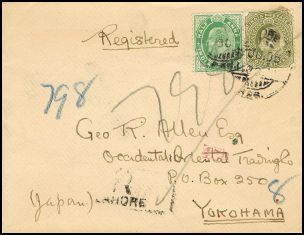 Registered
798
Geo R. Allen Esq
Occidental Oriental Trading Co
P.O. Box 250
8
(Japan)
LAHORE
YOKOHAMA